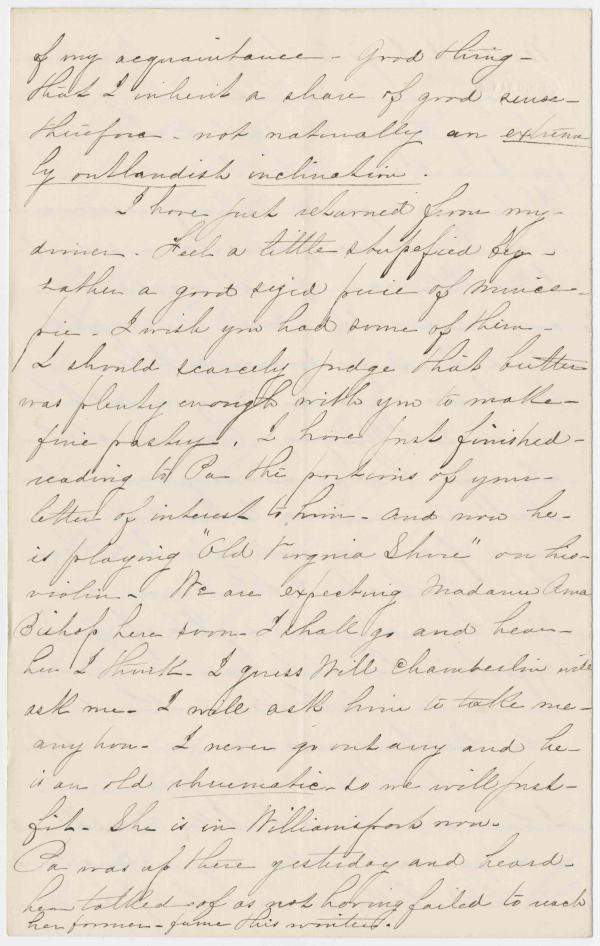 of my acquaintance - Good thing -
that I inherit a share of good sense -
therefore - not naturally an extreme
ly outlandish inclination.
I have just returned from my -
dinner - Feel a little stupefied by -
rather a good sized piece of mince -
pie - I wish you had some of them -
I should scarcely judge that butter
was plenty enough with you to make -
fine pastry. I have just finished -
reading to Pa the portions of your -
letter of interest to him - and now he -
is playing "Old Virginia Shore" on his
violin - We are expecting Madame Anna
Bishop here soon - I shall go and hear -
her I think - I guess Will Chamberlin will
ask me - I will ask him to take me -
any how - I never go out any and he -
is an old rheumatic - so we will just -
fit - She is in Williamsport now -
Pa was up there yesterday and heard -
her talked of as not having failed to reach
her former - fame this winter.